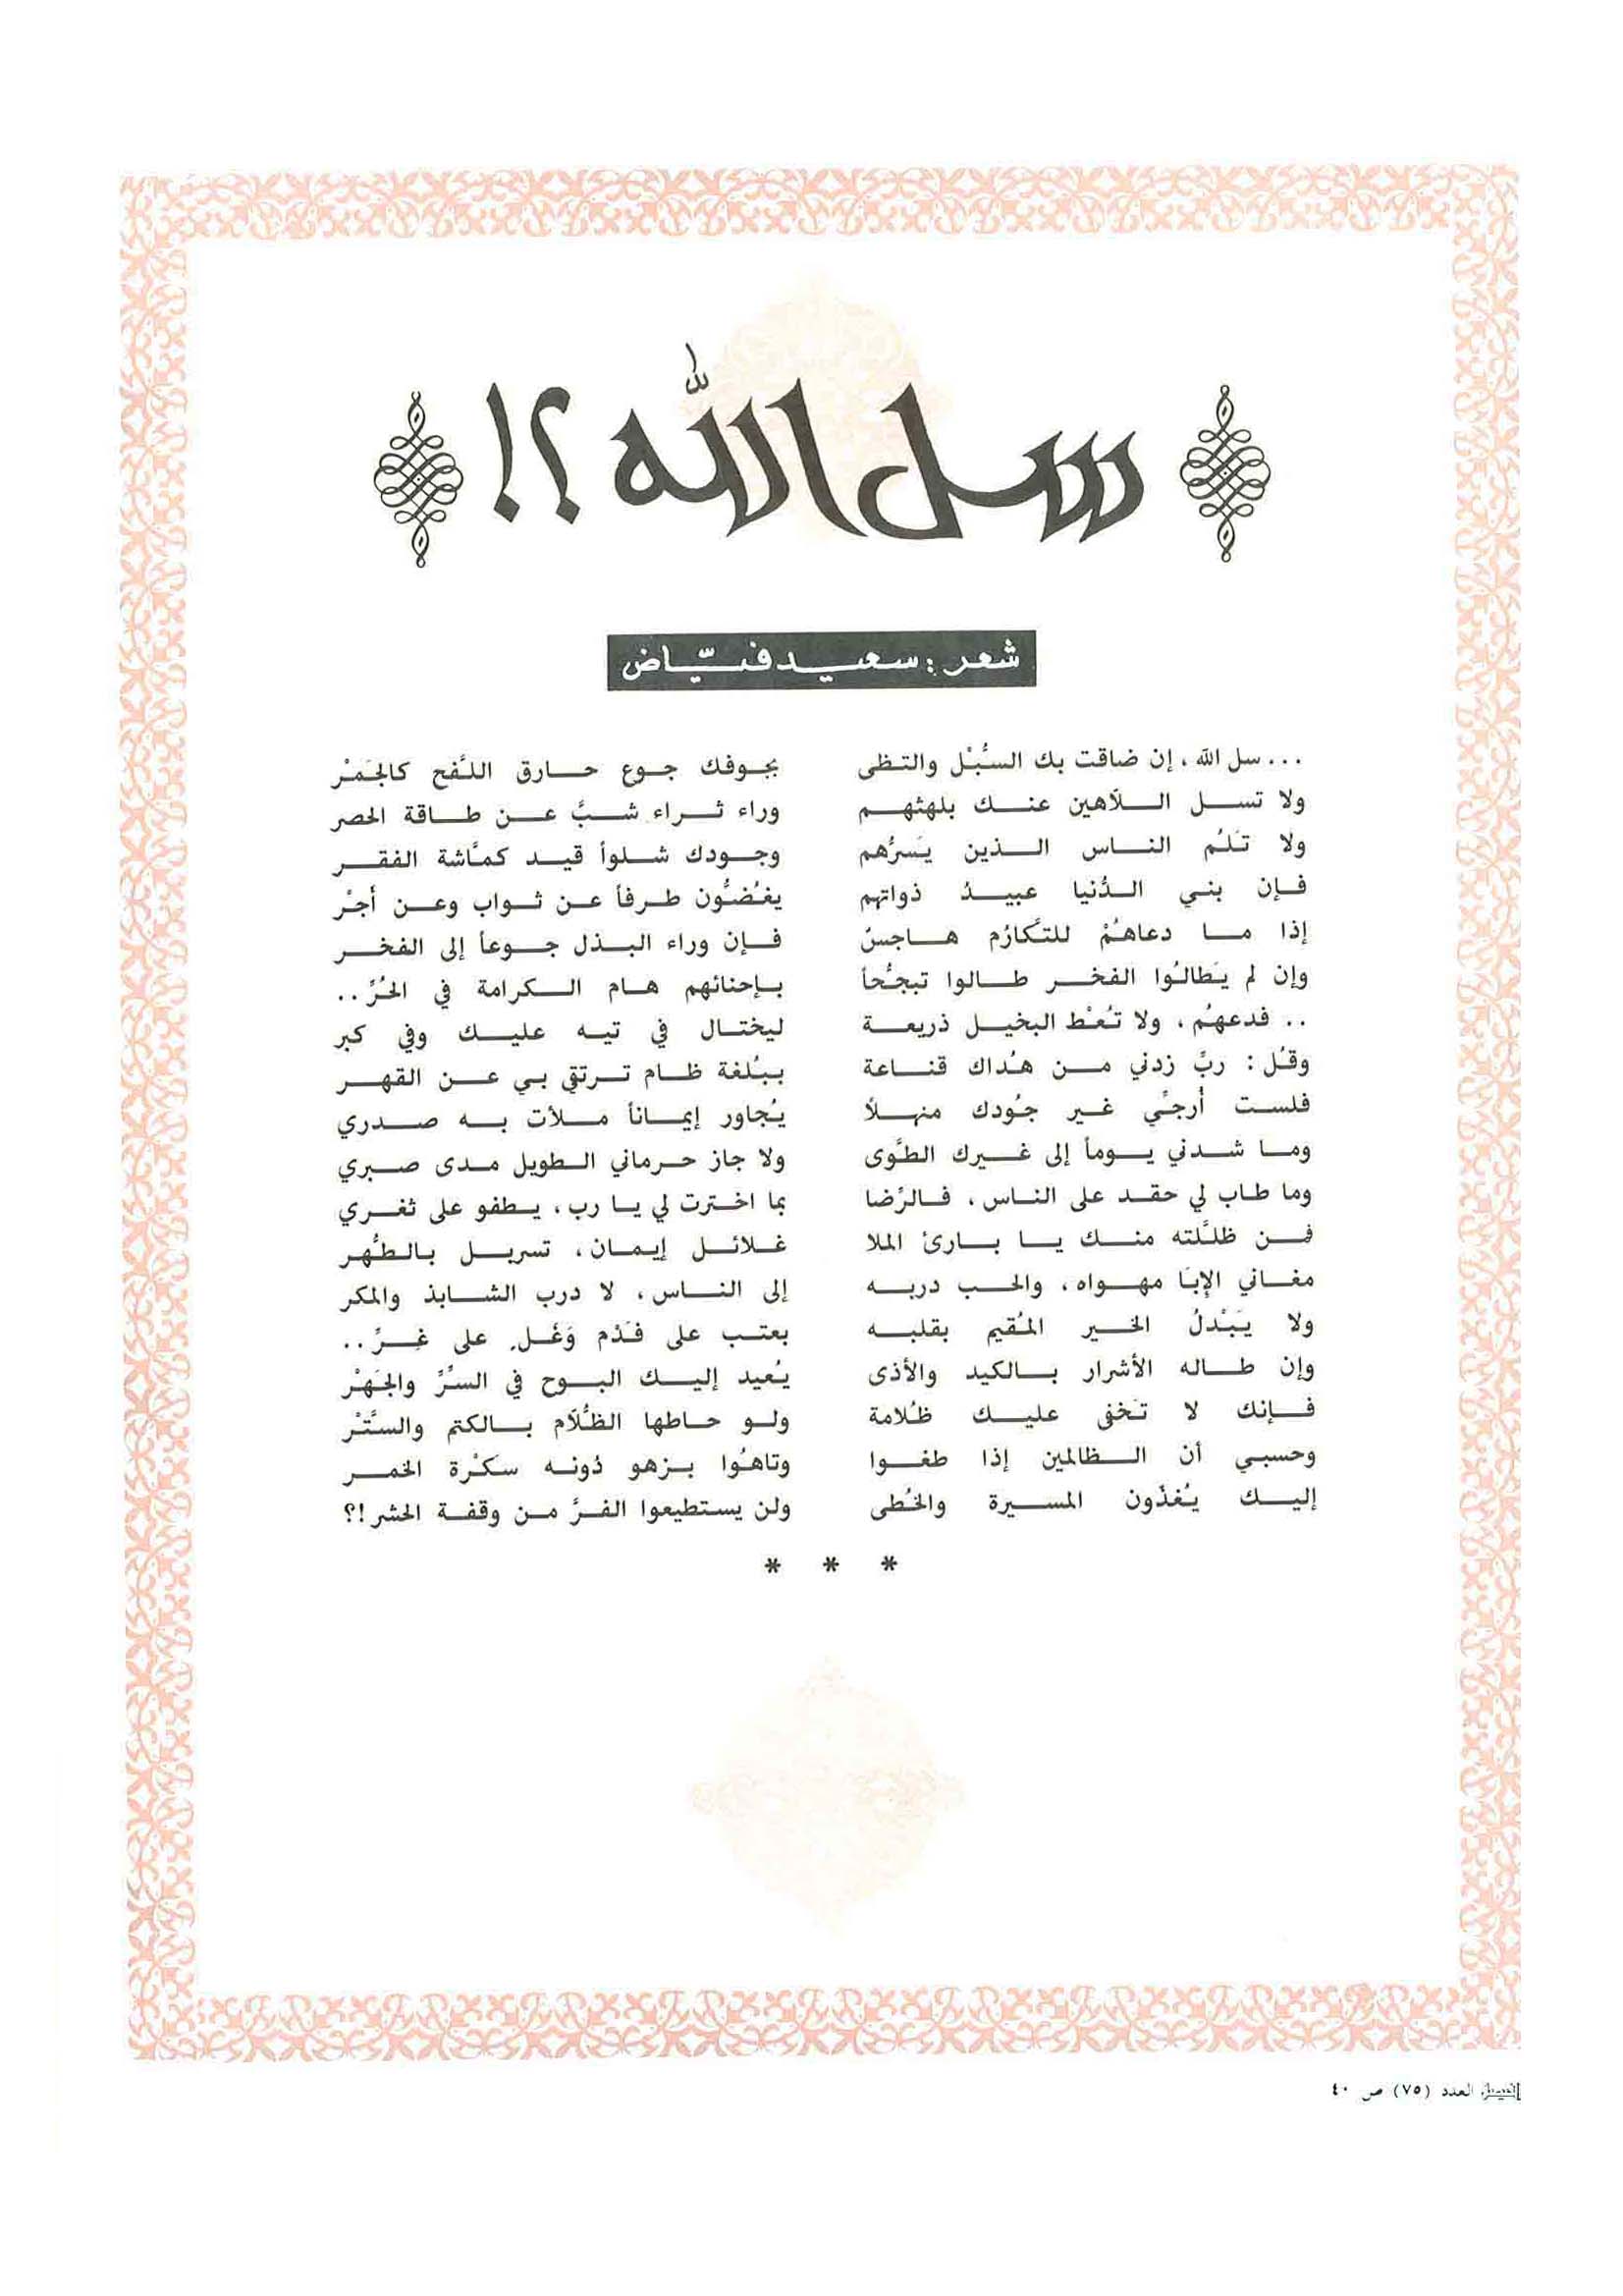 سل الله ؟!
شعر : سعيد فيّاض
... سل الله ، إن ضاقت بك السُّبْل والتظى بجوفك جوع حارق اللَّفح كالجَمْر
ولا تسل اللاَّهين عنك بلهثهم وراء ثراء شبَّ عن طاقة الحصر
ولا تَلُم الناس الذين يَسرُّهم وجودك شلواً قيد كمَّاشة الفقر
فإن بني الدُّنيا عبيدُ ذواتهم يغُضُّون طرفاً عن ثواب وعن أجْر
إذا ما دعاهُمْ للتكارُم هاجسٌ فإن وراء البذل جوعاً إلى الفخر
وإن لم يَطالُوا الفخر طالوا تبجُّحاً بإحنائهم هام الكرامة في الحُرِّ ..
.. فدعهُم ، ولا تُعْط البخيل ذريعة ليختال في تيه عليك وفي كبر
وقُل : ربِّ زدني من هُداك قناعة ببُلغة ظام ترتقي بي عن القهر
فلست أُرجِّي غير جُودك منهلاً يُجاور إيماناً ملأت به صدري
وما شدني يوماً إلى غيرك الطَّوى ولا جاز حرماني الطويل مدى صبري
وما طاب لي حقد على الناس ، فالرِّضا بما اخترت لي يا رب ، يطفو على ثغري
فمن ظلَّلته منك يا بارئ الملا غلائل إيمان ، تسربل بالطُّهر
مغاني الإبَا مهواه ، والحب دربه إلى الناس ، لا درب الشابذ والمكر
ولا يَبْدلُ الخير المُقيم بقلبه بعتب على فَدْم وَغْل, على غرِّ ..
وإن طاله الأشرار بالكيد والأذى يُعيد إليك البوح في السرِّ والجَهْر
فإنك لا تَخفى عليك ظُلامة ولو حاطها الظُّلاَّم بالكتم والسَّتْر
وحسبي أن الظالمين إذا طغوا وتاهُوا بزهو دُونه سكْرة الخمر
إليك يُغذّون المسيرة والخُطى ولن يستطيعوا الفرَّ من وقفة الحشر !؟
* * *
الفيصل العدد (٧٥) ص ٤٠